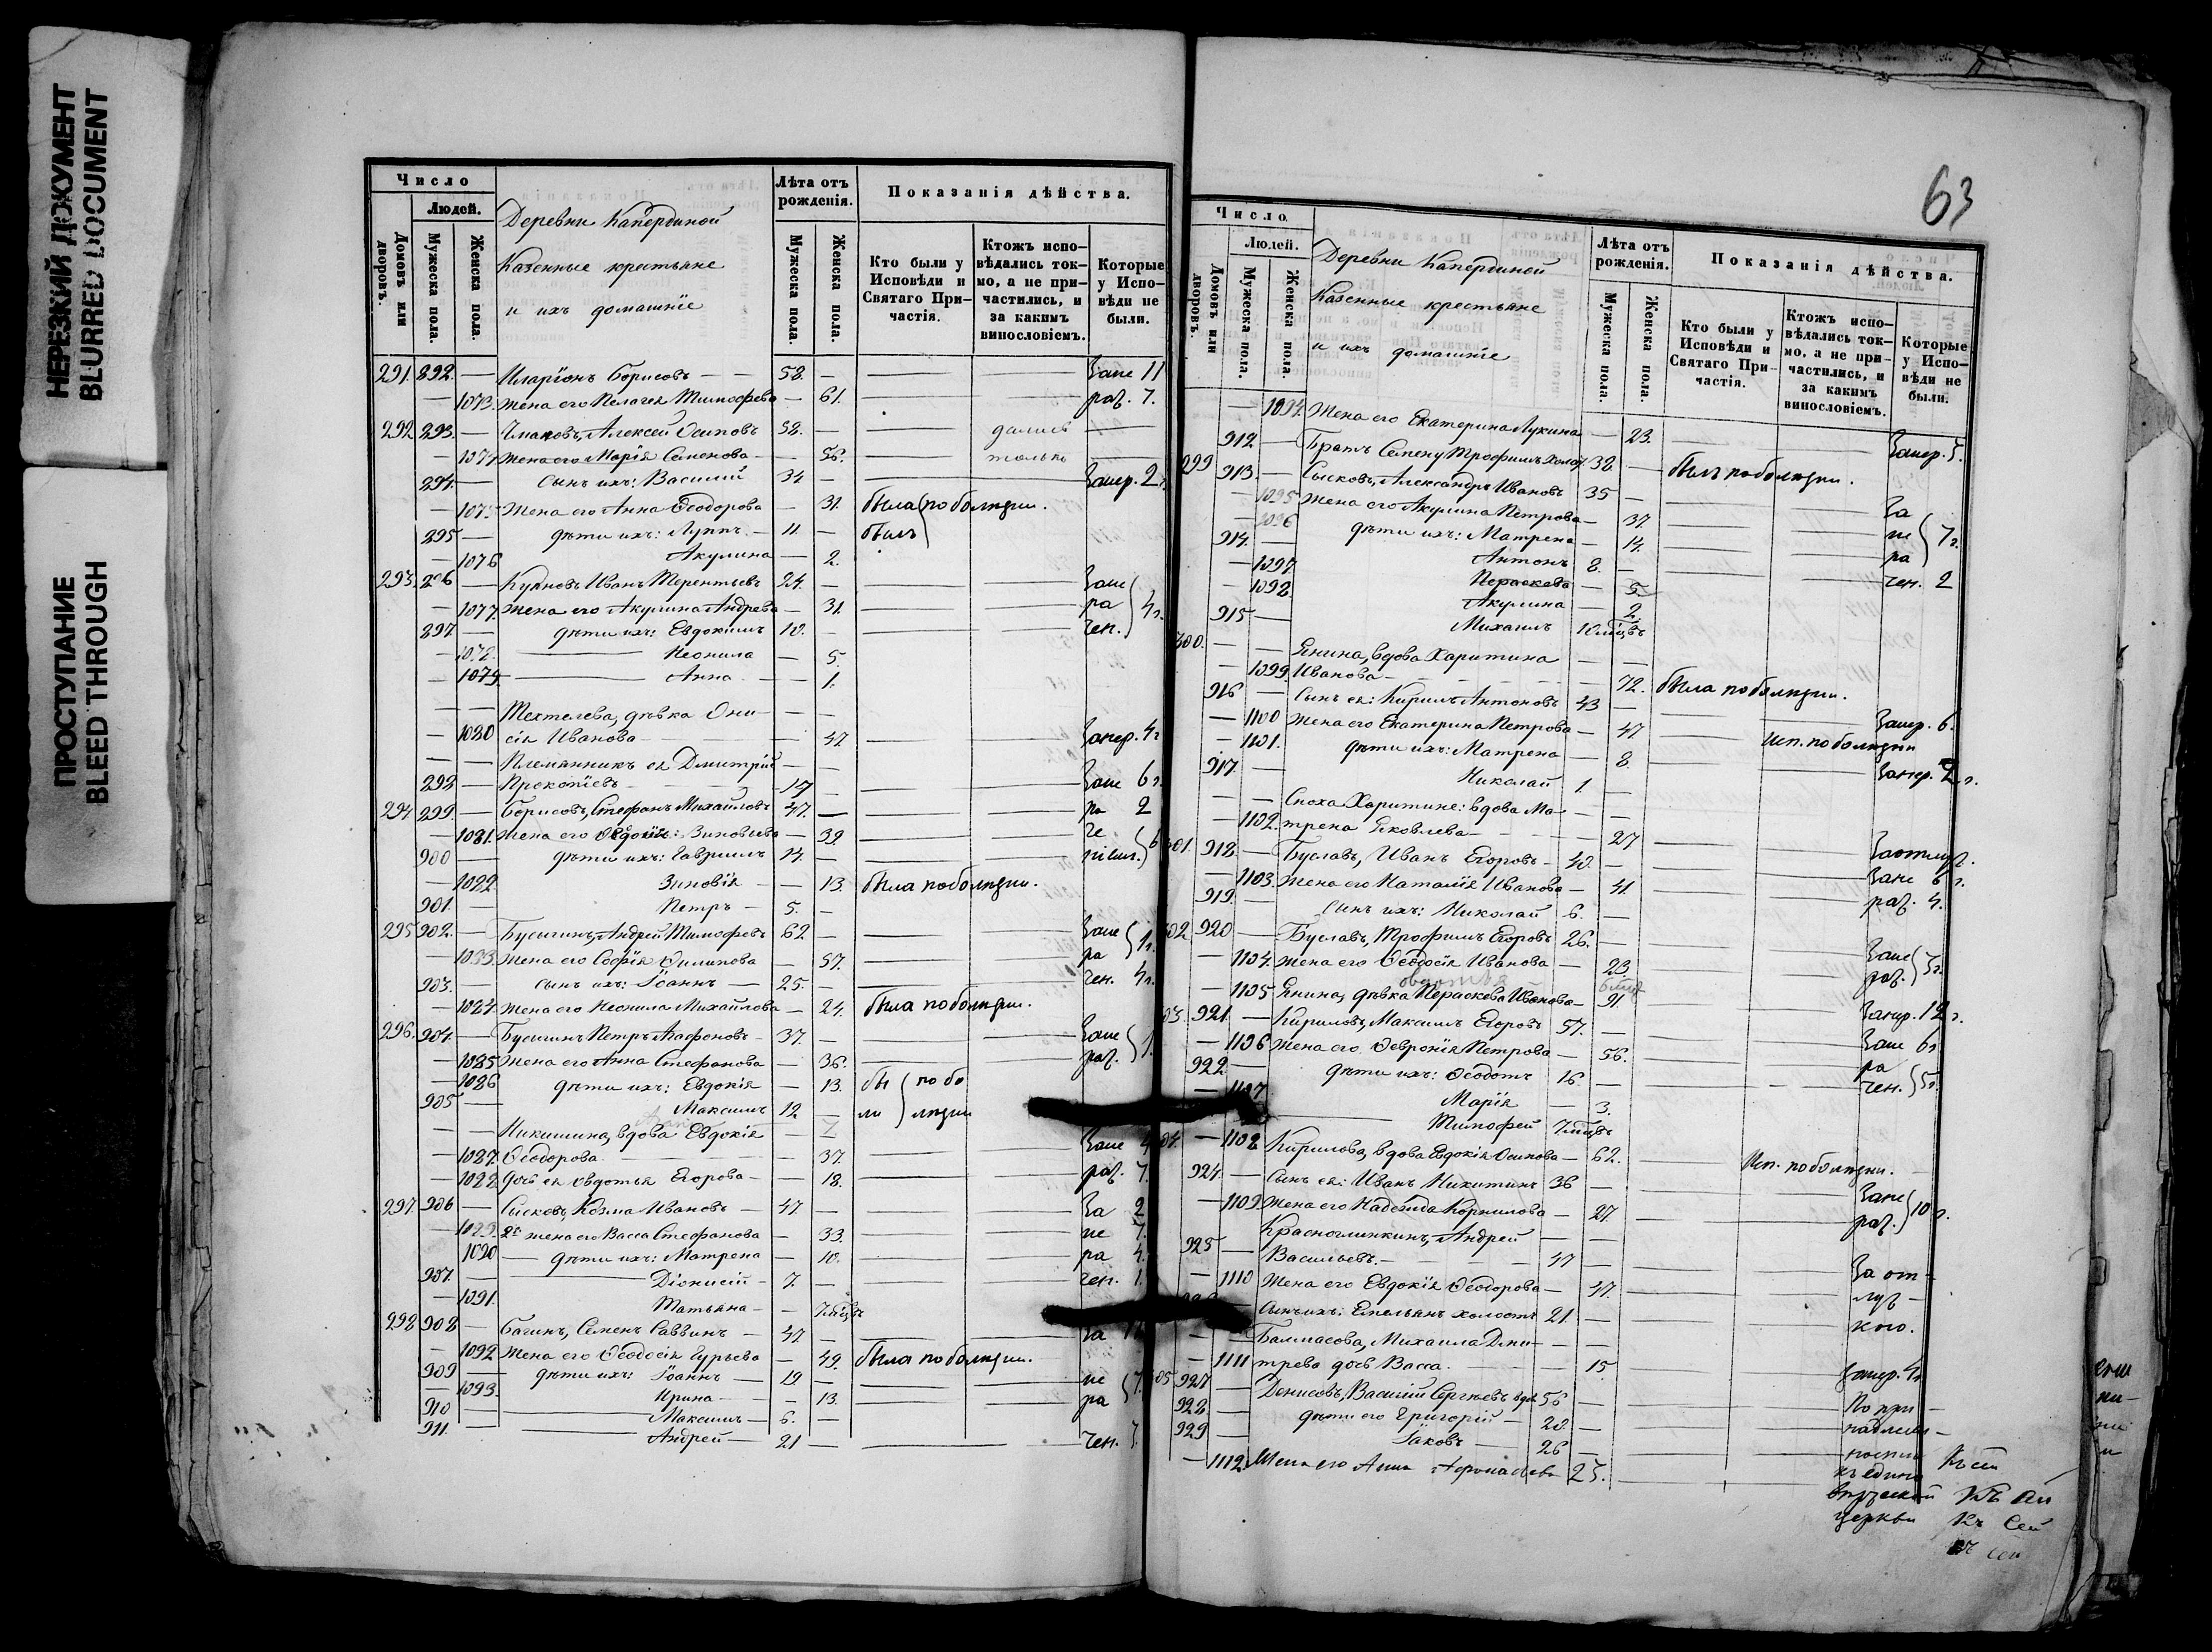 НЕРЕЗКИЙ ДОКУМЕНТ
BLURRED DOCUMENT
ПРОСТУПАНИЕ
BLEED THROUGH
Число
Людей.
Домовъ или дворовъ.
Мужеска пола.
Женска пола.
Деревни Капердиной
Казенные крестьяне
и ихъ домашніе
Лѣта отъ рожденія.
Мужеска пола.
Женска пола.
Показанія дѣйства.
Кто были у Исповѣди и Святаго Причастія.
Ктожъ исповѣдались токмо, а не причастились, и за какимъ винословіемъ.
Которые у Исповѣди не были.
291. 892. — Иларіонъ Борисовъ — — 58. — Зане 11
— 1073. Жена его Пелагея Тимофева — 61. раз. 7.
292 293. — Алексей Осиповъ 58. —
— 1074 Жена его Марія Семенова — 56. только
294. — Сынъ ихъ: Василій 34 — Занер. 2 г.
— 1075 Жена его Анна Ѳеодорова — 31. была по болѣзни.
295 — дѣти ихъ: Луппъ — 11 — былъ
— 1076 Акулина — 2.
293. 296 — Иванъ Терентьевъ 24. — Зане
— 1077. Жена его Акулина Андрева — 31. ра 4 г.
297 — дѣти ихъ: Евдокимъ 10. — чен.
— 1078. Неонила — 5.
— 1079. Анна — 1.
— — дѣвка Они-
— 1080 сія Иванова — 47 Занер. 4 г
— — Племянникъ ея Дмитрій —
298 — Прокопіевъ 17 — Зане 6 г.
294 299. — Борисовъ, Стефанъ Михайловъ 47. — ра 2
— 1081. Жена его Евдокія Зиновьева — 39. че
900 — дѣти ихъ: Гавриилъ 14. — 6
— 1082 Зиновія — 13. была по болѣзни.
901. — Петръ — 5. —
295 902. — Бусыгинъ, Андрей Тимофевъ 62 — Зане
— 1083. Жена его Софія Филипова — 57. ра 1 г.
903. — сынъ ихъ: Іоаннъ — 25. — чен. 4 г.
— 1084. Жена его Неонила Михайлова — 24. была по болѣзни.
296. 904. — Бусыгинъ Петръ Агафоновъ — 37. — Зане
— 1085 Жена его Анна Стефанова — 36. раз. 1.
— 1086 дѣти ихъ: Евдокія — 13. бы по бо
905 — Максимъ 12 — ли лѣзни
— — Никишина, вдова Евдокія — Зане 4
— 1087. Ѳеодорова — 37. раз. 7.
— 1088 дочь ея Евдотья Егорова — 18.
297 906 — Сысковъ, Козма Ивановъ — 47 — За 2
— 1089. 2я жена его Васса Стефанова — 33. не 7.
1090 — дѣти ихъ: Матрена — 10. ра 4.
907. — Діонисій — 7. — чен. 1.
— 1091. Татьяна — — 7 мѣцъ
298 908 — Багинъ, Семенъ Саввинъ — 47 — За
— 1092 Жена его Ѳеодосія Гурьева — 49. была по болѣзни.
909 — дѣти ихъ: Іоаннъ — 19 — не 7.
— 1093. Ирина — — 13. ра
910 — Максимъ — 6. —
911. — Андрей — 21 — чен.
63
Число.
Людей.
Домовъ или дворовъ.
Мужеска пола.
Женска пола.
Деревни Капердиной
Казенные крестьяне
и ихъ домашніе
Лѣта отъ рожденія.
Мужеска пола.
Женска пола.
Показанія дѣйства.
Кто были у Исповѣди и Святаго Причастія.
Ктожъ исповѣдались токмо, а не причастились, и за какимъ винословіемъ.
Которые у Исповѣди не были.
— 1094. Жена его Екатерина Лукина — 23. Занер. 5.
912 — Братъ Семену Трофимъ холос. 38. — былъ по болѣзни.
299 913. — Сысковъ, Александръ Ивановъ 35 — За
— 1095 Жена его Акулина Петрова — 37. не 7 г.
— 1096 дѣти ихъ: Матрена — 14. ра
914. — Антонъ 8. — чен. 2
— 1097 Параскева — 5.
— 1098. Акулина — 2.
915 — Михаилъ 10 мѣцвъ
300. — Янина, вдова Харитина — —
— 1099. Иванова — 72. была по болѣзни.
916 — Сынъ ея: Кирилъ Антоновъ 43 — Занер. 6.
— 1100 Жена его Екатерина Петрова — 47 исп. по болѣзни
— 1101. дѣти ихъ: Матрена — 8. Занер. 2 г.
917. — Николай 1 —
— — Сноха Харитине: вдова Ма- —
— 1102. трена Яковлева — 27 За отлуч.
301. 918. — Буславъ, Иванъ Егоровъ — 40. — Зане 6 г.
— 1103. Жена его Наталія Иванова — 41. раз. 4.
919. — Сынъ ихъ: Николай 6. —
302 920 — Буславъ, Трофимъ Егоровъ 26. — Зане
— 1104. Жена его Ѳеодосія Иванова — 23 раз. 3 г.
— 1105 Янина, дѣвка Параскева Иванова — 91. Занер. 12 г.
303. 921. — Кириловъ, Максимъ Егоровъ 57. — Зане 6 г
— 1106 Жена его Ѳевронія Петрова — 56. ра
922 — дѣти ихъ: Ѳеодотъ 16. — чен. 5 г.
— 1107 Марія — 3.
Тимофей 7 мѣцвъ
304. — 1108 Кирилова, вдова Евдокія Осипова — 62. Исп. по болѣзни.
924. — Сынъ ея: Иванъ Никитинъ 36 — Зане
— 1109 Жена его Надежда Корнилова — 27. раз. 10 г.
Красноглинкинъ, Андрей — —
925 — Васильевъ. 47 — За от-
— 1110 Жена его Евдокія Ѳеодорова — 47. луч-
— Сынъ ихъ: Емельянъ холостъ 21. — кою.
— — Балмасова, Михаила Дми-
— 1111 трева дочь Васса. — 15 Занер. 4 г
305 927 — Денисовъ, Василій Сергѣевъ вдов. 56 — По при-
928. — дѣти его Григорій — 20. — надлеж-
929 — Іаковъ — 26 — ности
— 1112. Жена его Анна Афонасьева 25. къ едино
вѣрческой
церкви